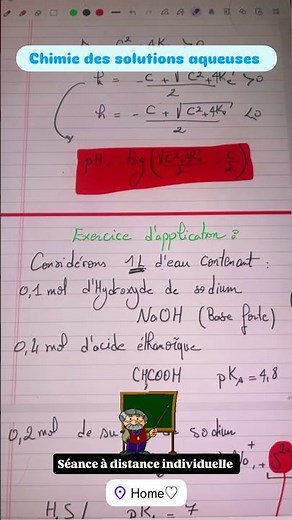 Chimie des solutions aqueuses
h = -C + √C²+4Ke >0
2
h = - C + √C²+4Ke <0
2
pH = -log (√C²+4Ke / 2 - C/2)
Exercice d'application :
Considérons 1L d'eau contenant :
0,1 mol d'Hydroxyde de sodium
NaOH (Base forte)
0,4 mol d'acide éthanoïque
CH₃COOH pKA = 4,8
0,2 mol de su sodium
Séance à distance individuelle
H₂S / pK₁ = 7
Home♡